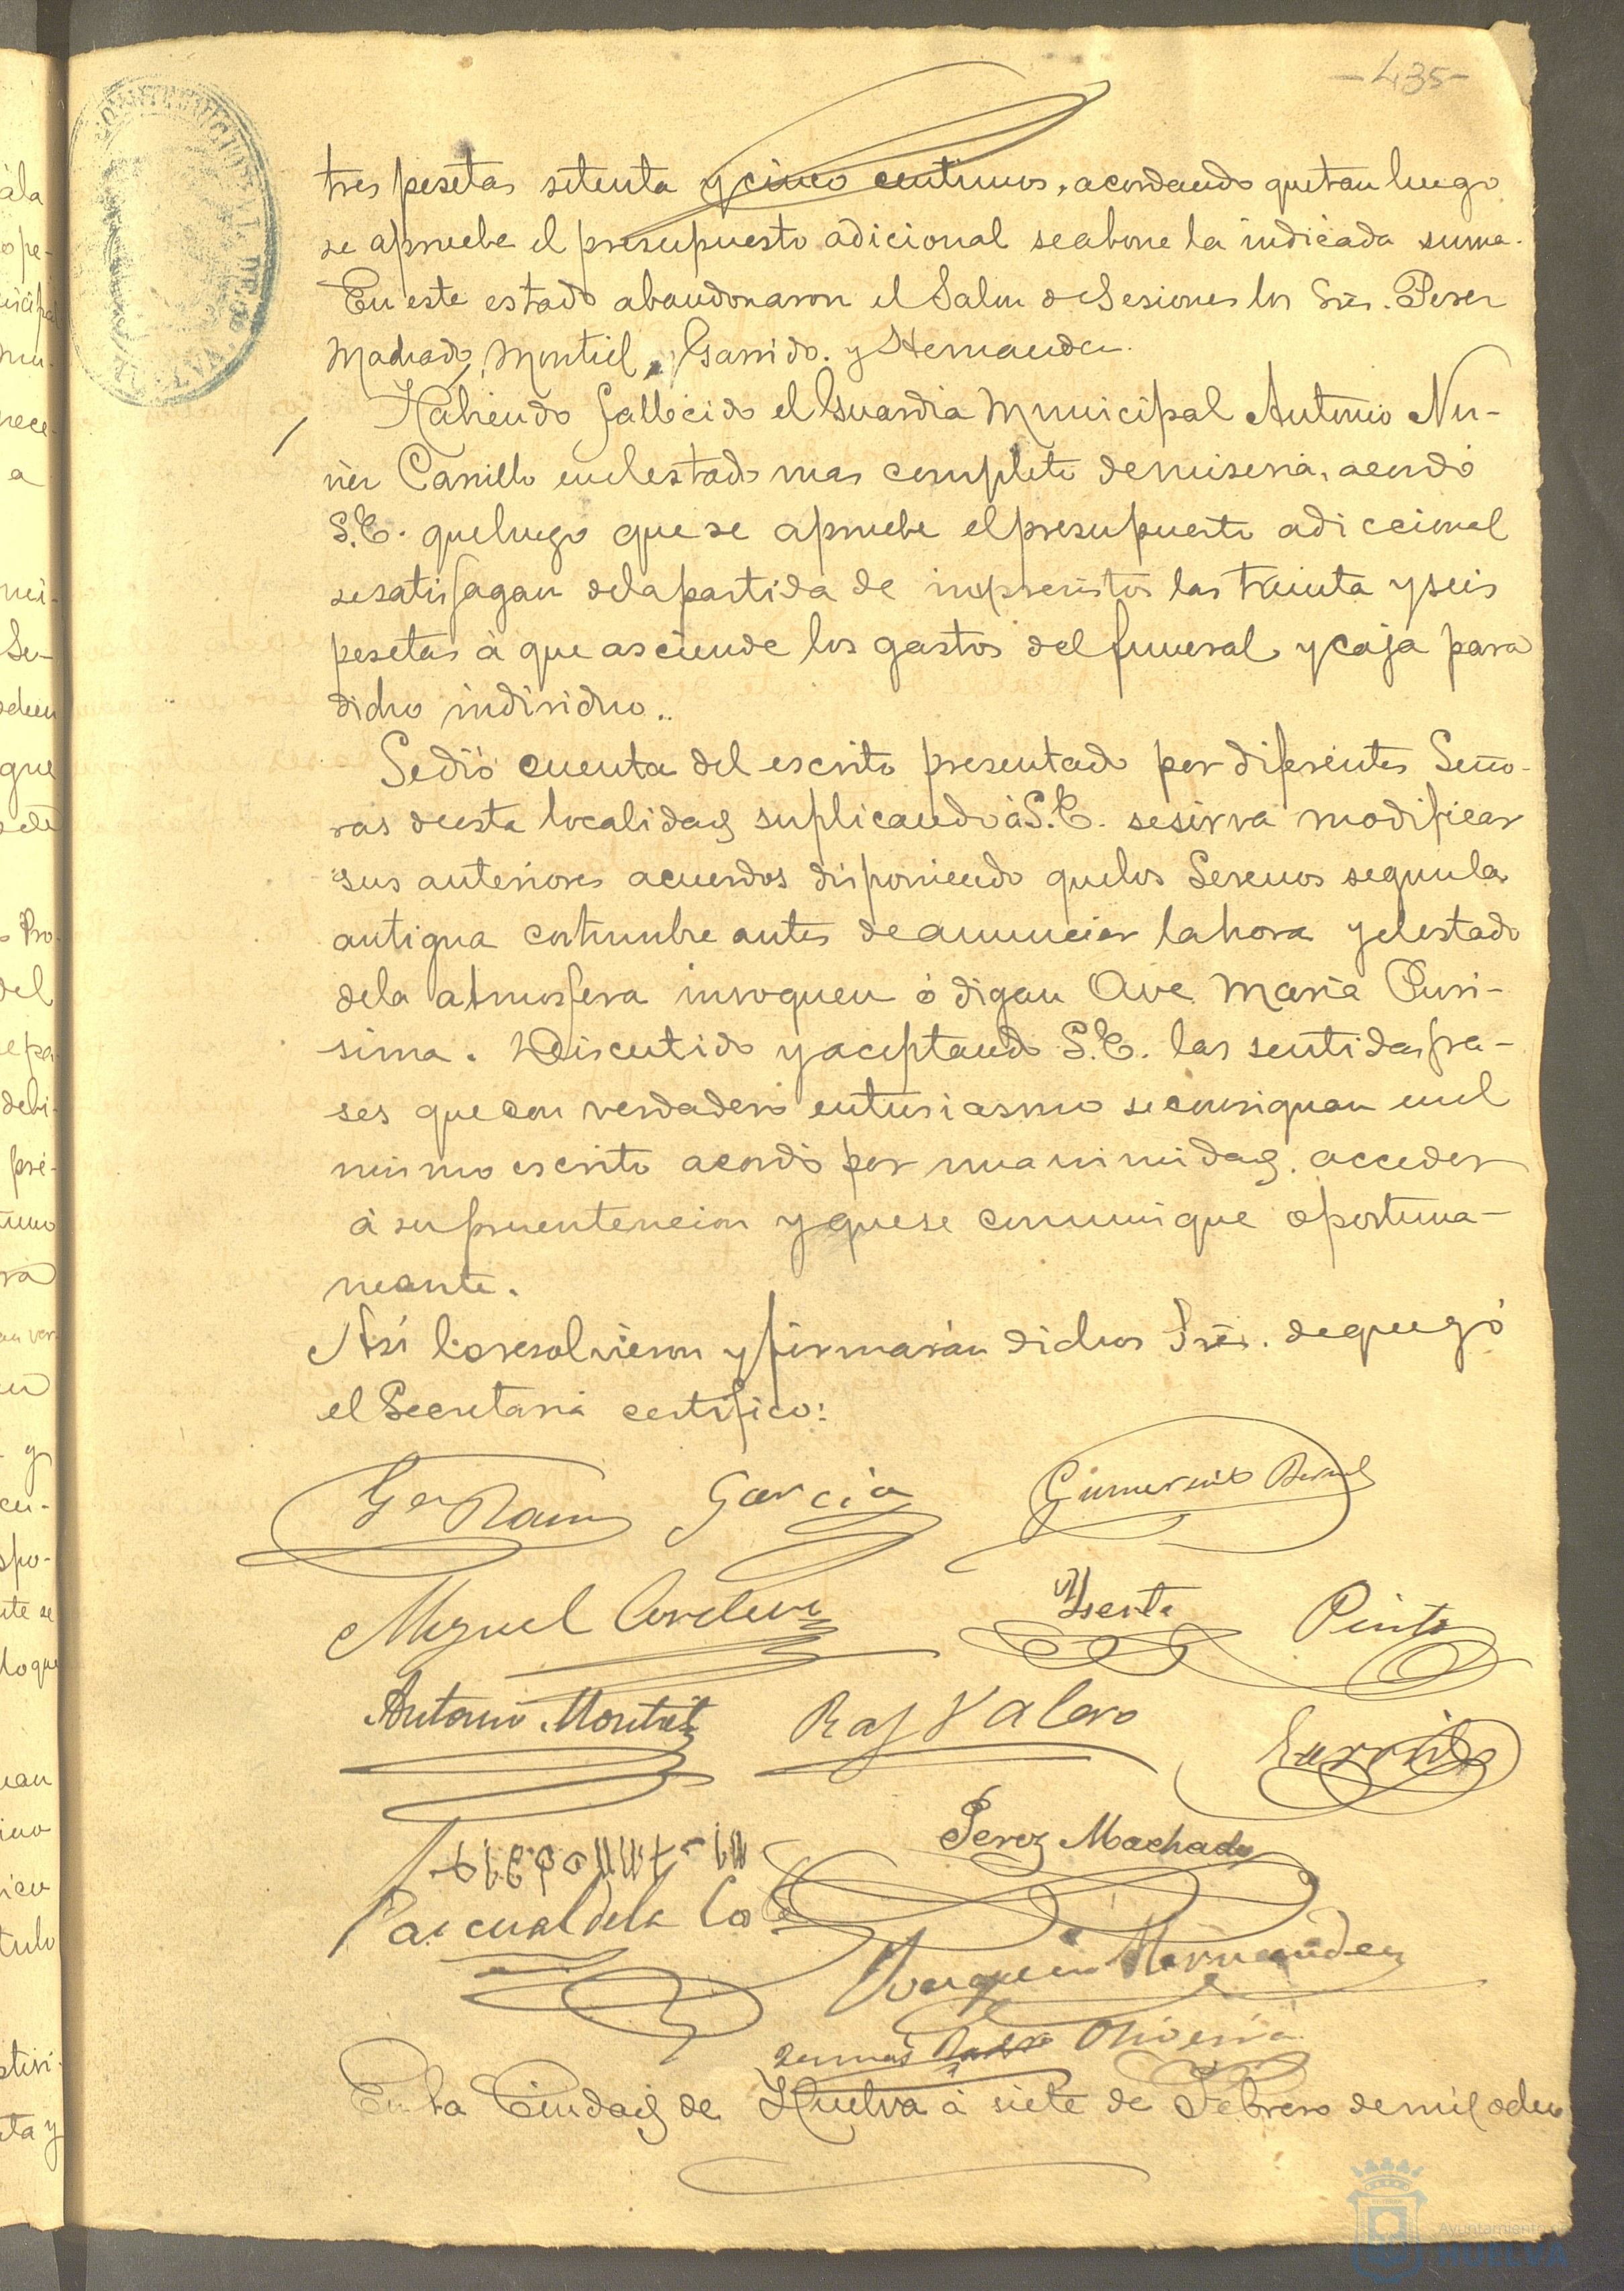 -435-
tres pesetas setenta y cinco centimos, acordando que tan luego
se apruebe el presupuesto adicional se abone la indicada suma.
En este estado abandonaron el Salon de Sesiones los Sres. Perez
Machado, Montiel, Garrido. y Hernandez.
Habiendo fallecido el Guardia Municipal Antonio Nu-
ñez Carrillo en el estado mas completo de miseria, acordó
S.E. que luego que se apruebe el presupuesto adiccional
se satisfagan de la partida de imprevistos las treinta y seis
pesetas à que asciende los gastos del funeral y caja para
dicho individuo..
Se dió cuenta del escrito presentado por diferentes Seño-
ras de esta localidad suplicando à S.E. se sirva modificar
sus anteriores acuerdos disponiendo que los Serenos segun la
antigua costumbre antes de anunciar la hora y el estado
de la atmosfera invoquen ó digan Ave Maria Puri-
sima. Discutido y aceptando S.E. las sentidas fra-
ses que con verdadero entusiasmo se consignan en el
mismo escrito acordó por unanimidad. acceder
à su pretencion y que se comunique oportuna-
mente.
Así lo resolvieron y firmarán dichos Sres. de que yó
el Secretario certifico:
García
Gumersindo
Miguel Cordero
Pinto
Antonio Montiel
Raf Valero
Garrido
Perez Machado
Pascual de la
Joaquin Hernandez
Oliveira
En la Ciudad de Huelva à siete de Febrero de mil ocho
Ayuntamiento
HUELVA